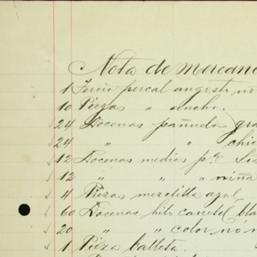 Nota de mercan
1 Tercio percal angosto no
10 Piezas " ancho.
24 Docenas pañuelo gra
24 " " chic
12 Docenas medias pa. 
12 " " niña
4 Piezas mezclilla azul
60 Docenas hilo candel bla
20 " " color no
1 Pieza balleta.